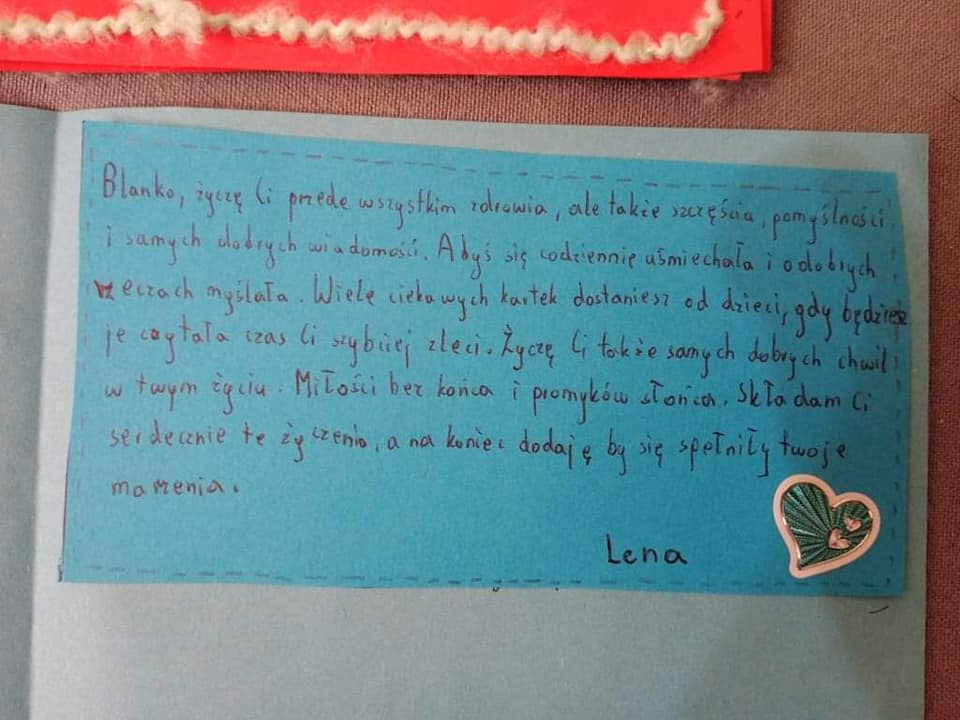 Blanko, życzę Ci przede wszystkim zdrowia, ale takie szczęścia, pomyślności
i samych dobrych wiadomości. Abyś się codziennię uśmiechała i o dobrych
rzeczach myślała. Wiele ciekawych kartek dostaniesz od dzieci, gdy będziesz
je czytała czas Ci szybciej zleci. Życzę Ci także samych dobrych chwil
w twym życiu. Miłości bez końca i promyków słońca. Składam Ci
serdecznie te życzenia, a na koniec dodaję by się spełniły twoje
marzenia.
Lena